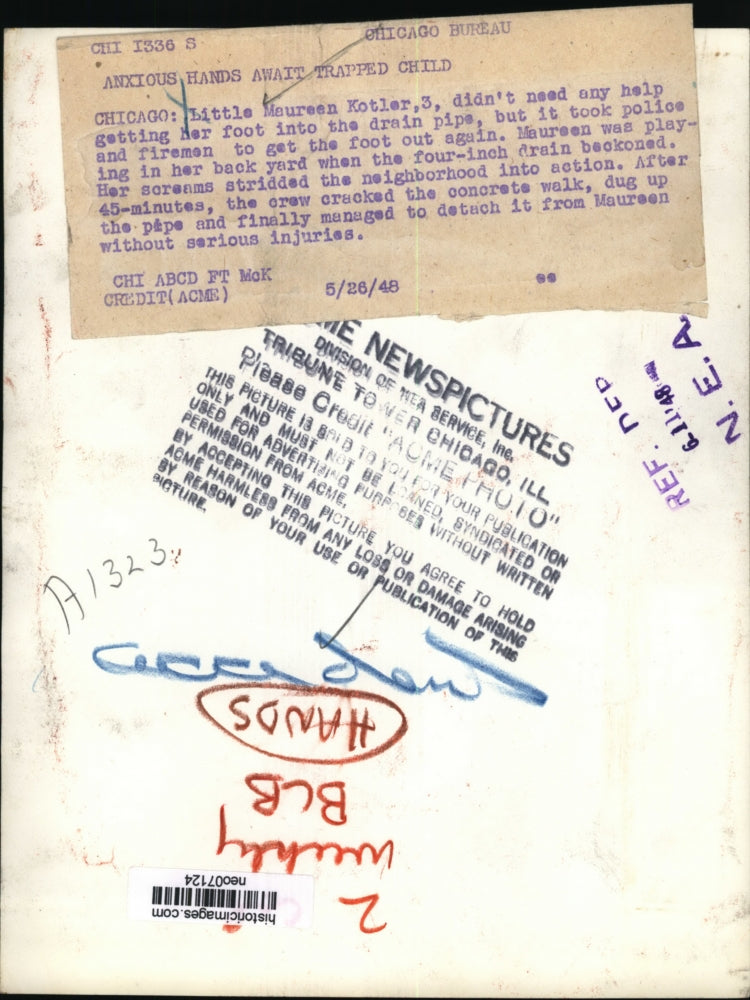 CHI 1336 S
CHICAGO BUREAU
ANXIOUS HANDS AWAIT TRAPPED CHILD
CHICAGO: Little Maureen Kotler,3, didn't need any help
getting her foot into the drain pipe, but it took police
and firemen to get the foot out again. Maureen was play-
ing in her back yard when the four-inch drain beckoned.
Her screams stridded the neighborhood into action. After
45-minutes, the crew cracked the concrete walk, dug up
the pipe and finally managed to detach it from Maureen
without serious injuries.
CHI ABCD FT McK
CREDIT(ACME)
5/26/48
ee
ME NEWSPICTURES
DIVISION OF NEA SERVICE, Inc.
TRIBUNE TOWER CHICAGO, ILL
Please Credit "ACME PHOTO"
THIS PICTURE IS SOLD TO YOU FOR YOUR PUBLICATION
ONLY AND MUST NOT BE LOANED, SYNDICATED OR
USED FOR ADVERTISING PURPOSES WITHOUT WRITTEN
PERMISSION FROM ACME.
BY ACCEPTING THIS PICTURE YOU AGREE TO HOLD
ACME HARMLESS FROM ANY LOSS OR DAMAGE ARISING
BY REASON OF YOUR USE OR PUBLICATION OF THIS
PICTURE.
REF. DEP
6-11-48
N.E.A.
A1323
HANDS
BCB
weekly
2
historicimages.com
neo07124